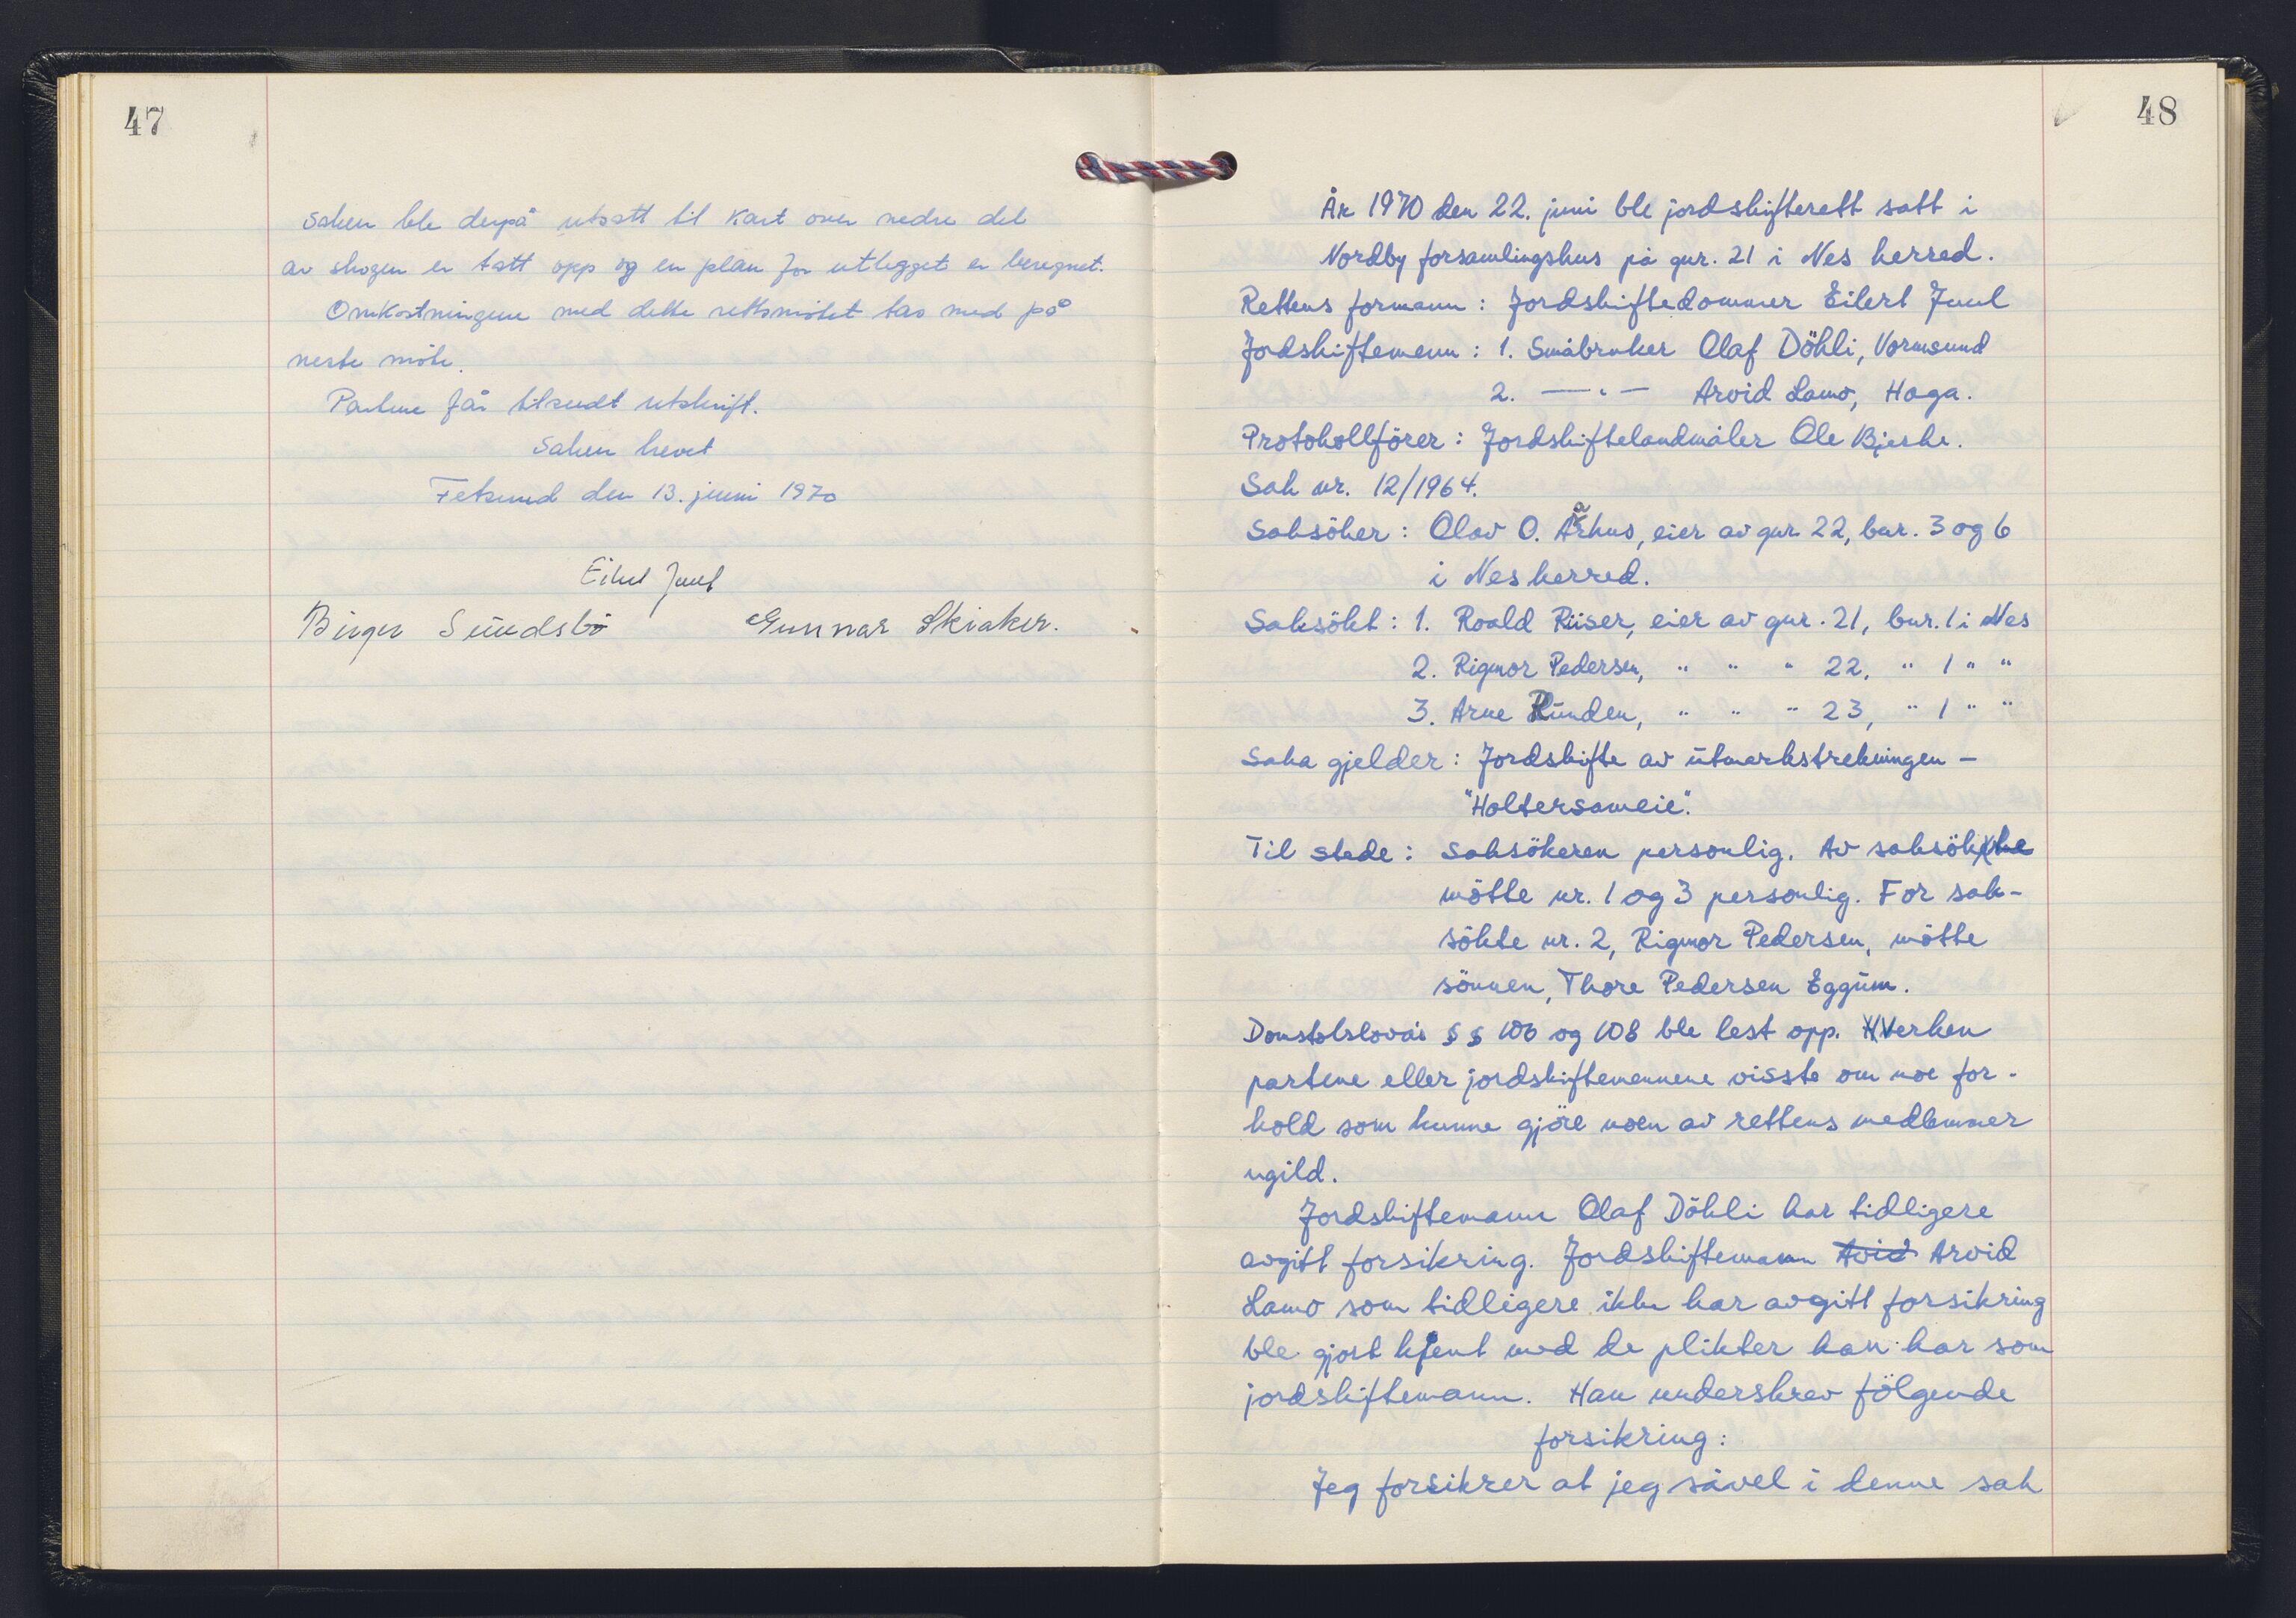 47
Saken ble derpå utsatt til kart over nedre del
av skogen er tatt opp og en plan for utlegget er beregnet.
Omkostningene med dette rettsmötet tas med på
neste möte.
Partene får tilsendt utskrift.
Saken hevet
Fetsund den 13. juni 1970
Eilert Juul
Birger Sundsbö Gunnar Skiaker.
48
År 1970 den 22. juni ble jordskifterett satt i
Nordby forsamlingshus på gnr. 21 i Nes herred.
Rettens formann: Jordskiftedommer Eilert Juul
Jordskiftemenn: 1. Småbruker Olaf Döhli, Vormsund
2. —"— Arvid Lamo, Haga.
Protokollförer: Jordskiftelandmåler Ole Bjerke.
Sak nr. 12/1964.
Saksöker: Olav O. Århus, eier av gnr. 22, bnr. 3 og 6
i Nes herred.
Saksökt: 1. Roald Riiser, eier av gnr. 21, bnr. 1 i Nes
2. Rigmor Pedersen, " " " 22, " 1 " "
3. Arne Runden, " " " 23, " 1 " "
Saka gjelder: Jordskifte av utmarkstrekningen –
"Holtersameie".
Til stede: Saksökeren personlig. Av saksökte
mötte nr. 1 og 3 personlig. For sak-
sökte nr. 2, Rigmor Pedersen, mötte
sönnen, Thore Pedersen Eggum.
Domstolslovas §§ 106 og 108 ble lest opp. Verken
partene eller jordskiftemennene visste om noe for-
hold som kunne gjöre noen av rettens medlemmer
ugild.
Jordskiftemann Olaf Döhli har tidligere
avgitt forsikring. Jordskiftemann Avid Arvid
Lamo som tidligere ikke har avgitt forsikring
ble gjort kjent med de plikter han har som
jordskiftemann. Han underskrev fölgende
forsikring:
Jeg forsikrer at jeg såvel i denne sak